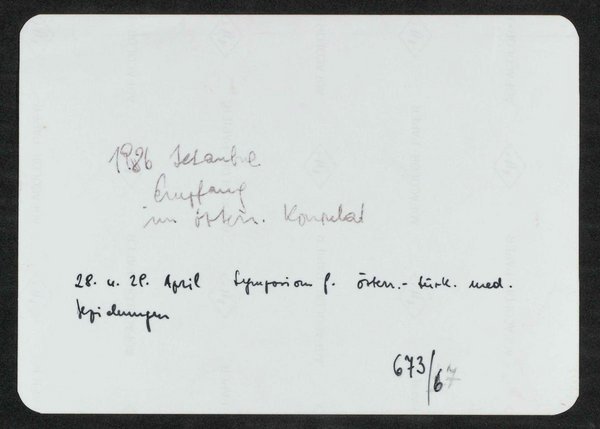 1986 Istanbul
Empfang
im österr. Konsulat
28. u. 29. April Symposium f. österr.-türk. med.
Beziehungen
673/67